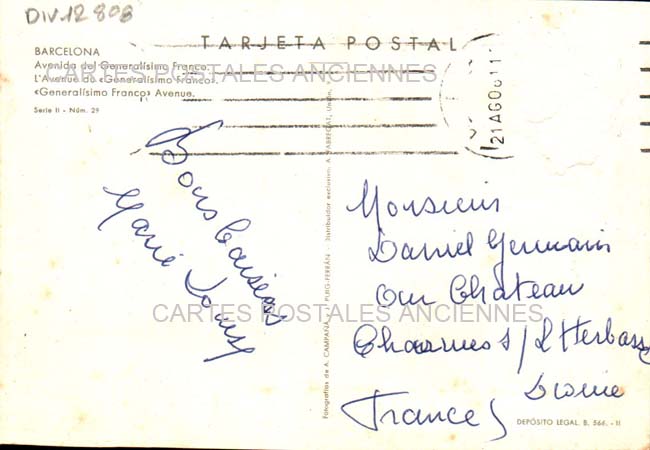 DIV.12 808
TARJETA POSTAL
BARCELONA
Avenida del Generalísimo Franco.
L'Avenue du «Generalísimo Franco».
«Generalísimo Franco» Avenue.
Serie II - Núm. 29
CARTES POSTALES ANCIENNES
21 AGO 6
Bons baisers
Marie Louise
Monsieur
Daniel Germain
au Château
Charmes s/ L'Herbasse
Drome
France
CARTES POSTALES ANCIENNES
Fotografías de A. CAMPAÑÁ y J. PUIG-FERRÁN - Distribuidor exclusivo: A. FABREGAT, Unión,
DEPÓSITO LEGAL. B. 566. - II